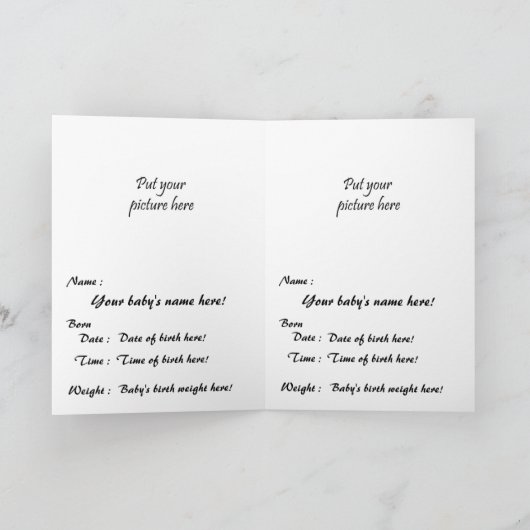 Put your
picture here
Name :
Your baby's name here!
Born
Date : Date of birth here!
Time : Time of birth here!
Weight : Baby's birth weight here!
Put your
picture here
Name :
Your baby's name here!
Born
Date : Date of birth here!
Time : Time of birth here!
Weight : Baby's birth weight here!